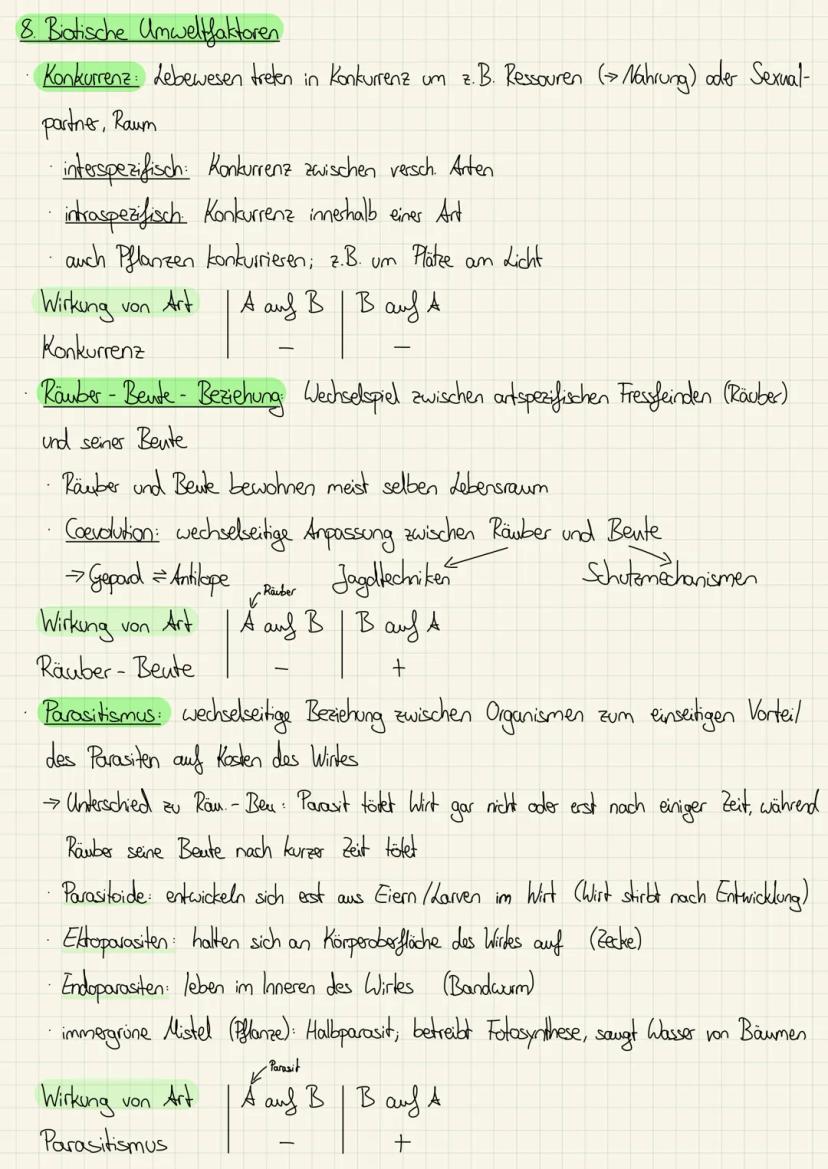 8. Biotische Umweltfaktoren
· Konkurrenz: Lebewesen treten in Konkurrenz um z.B. Ressouren (→ Nahrung) oder Sexual-
partner, Raum
· interspezifisch: Konkurrenz zwischen versch. Arten
· intraspezifisch: Konkurrenz innerhalb einer Art
· auch Pflanzen konkurrieren; z.B. um Plätze am Licht
Wirkung von Art | A auf B | B auf A
Konkurrenz | – | –
· Räuber - Beute - Beziehung: Wechselspiel zwischen artspezifischen Fressfeinden (Räuber)
und seiner Beute
· Räuber und Beute bewohnen meist selben Lebensraum
· Coevolution: wechselseitige Anpassung zwischen Räuber und Beute
→ Gepard ⇌ Antilope Jagdtechniken Schutzmechanismen
Räuber
Wirkung von Art | A auf B | B auf A
Räuber - Beute | – | +
· Parasitismus: wechselseitige Beziehung zwischen Organismen zum einseitigen Vorteil
des Parasiten auf Kosten des Wirtes
→ Unterschied zu Räu. - Beu: Parasit tötet Wirt gar nicht oder erst nach einiger Zeit, während
Räuber seine Beute nach kurzer Zeit tötet
· Parasitoide: entwickeln sich erst aus Eiern/Larven im Wirt (Wirt stirbt nach Entwicklung)
· Ektoparasiten: halten sich an Körperoberfläche des Wirtes auf (Zecke)
· Endoparasiten: leben im Inneren des Wirtes (Bandwurm)
· immergrüne Mistel (Pflanze): Halbparasit; betreibt Fotosynthese, saugt Wasser von Bäumen
Parasit
Wirkung von Art | A auf B | B auf A
Parasitismus | – | +